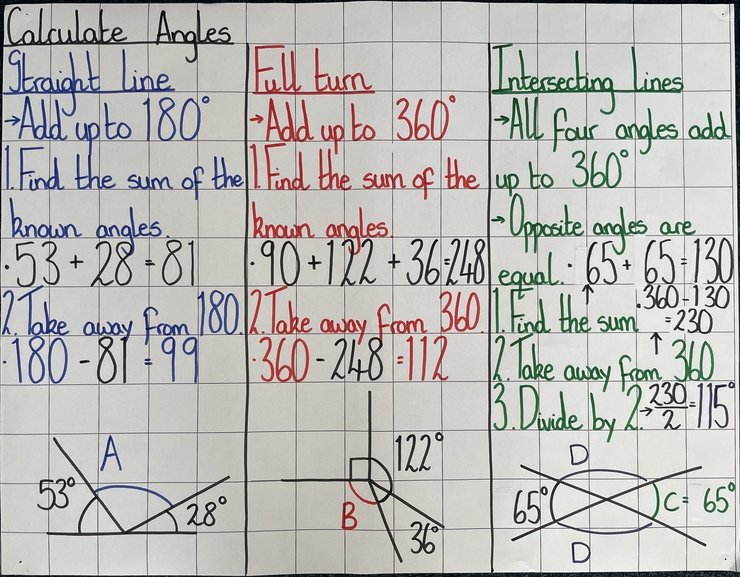 Calculate Angles
Straight line
→Add up to 180°
1.Find the sum of the
known angles.
·53 + 28 = 81
2.Take away from 180.
·180 - 81 = 99
A
53°
28°
Full turn
→Add up to 360°
1.Find the sum of the
known angles.
·90 + 122 + 36=248
2.Take away from 360.
·360 - 248 = 112
122°
B
36°
Intersecting lines
→All four angles add
up to 360°
→Opposite angles are
equal. · 65 + 65 = 130
↑ .360-130
1.Find the sum =230
↑
2.Take away from 360
3.Divide by 2.→230/2=115°
D
65°
C= 65°
D